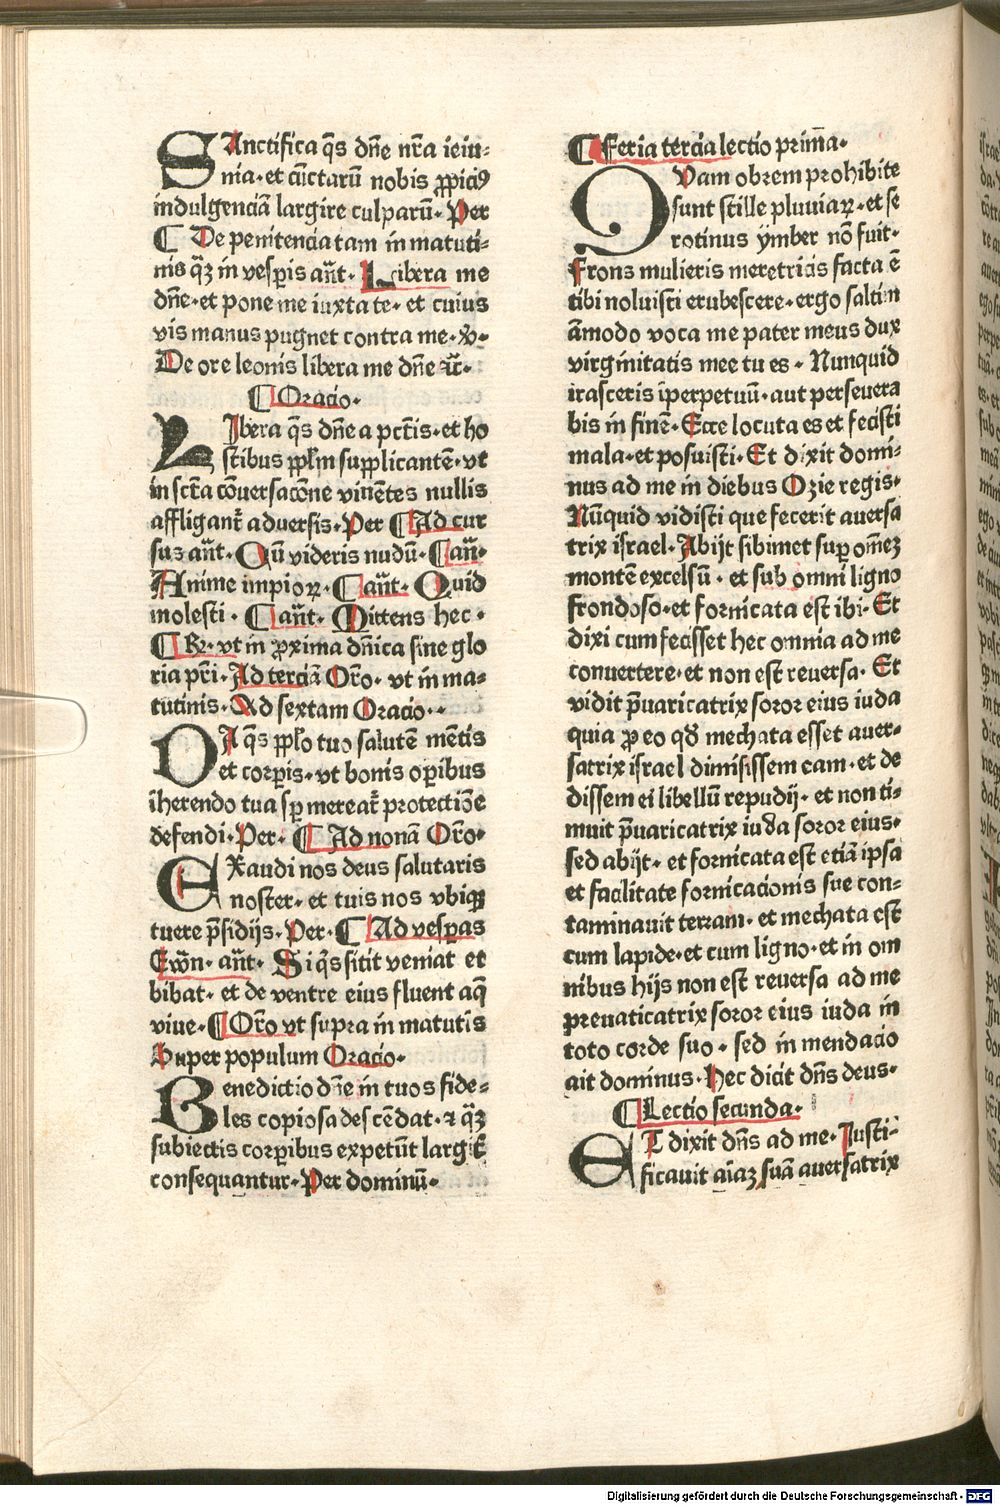 SAnctifica q̄s dn̄e nr̄a ieiu⸗
nia · et cūctarū nobis ꝓpiciꝰ
indulgenciā largire culparū · Per
¶ De penitencia tam in matuti⸗
nis q̄ꝫ in vesꝑis an̄t · Libera me
dn̄e · et pone me iuxta te · et cuius
vis manus pugnet contra me · ꝟ ·
De ore leonis libera me dn̄e ⁊c̄ ·
¶ Oracio ·
LIbera q̄s dn̄e a pct̄is · et ho
stibus ppl̄m supplicantē · vt
in sct̄a cōuersacōne viuētes nullis
affligant᷑ aduersis · Per ¶ Ad cur
sus an̄t · Qū videris nudū · ¶ an̄ ·
Anime impioꝝ · ¶ an̄t · Quid
molesti · ¶ an̄t · Mittens hec ·
¶ R̄ · vt in ꝓxima dn̄ica sine glo
ria pr̄i · Ad terciā Or̄o · vt in ma⸗
tutinis · Ad sextam Oracio ·
DA q̄s pplo tuo salutē mētis
et corꝑis · vt bonis oꝑibus
īherendo tua sꝑ mereat᷑ protectiōe
defendi · Per · ¶ Ad nonā Or̄o ·
EXaudi nos deus salutaris
noster · et tuis nos vbiqꝫ
tuere p̄sidijs · Per · ¶ Ad vesꝑas
Ewn̄ · an̄t · Si q̄s sitit veniat et
bibat · et de ventre eius fluent aq̄
viue · ¶ Or̄o vt supra in matutīs
Super populum Oracio ·
BEnedictio dn̄e in tuos fide⸗
les copiosa descēdat · ⁊ q̄ꝫ
subiectis corꝑibus expetūt largit᷑
consequantur · Per dominū ·
¶ Feria tercia lectio prim̄a ·
QVam obrem prohibite
sunt stille pluuiaꝝ · et se
rotinus ymber nō fuit ·
Frons mulieris meretricis facta ē
tibi noluisti erubescere · ergo saltim
āmodo voca me pater meus dux
virginitatis mee tu es · Nunquid
irasceris īperpetuū · aut perseuera
bis in finē · Ecce locuta es et fecisti
mala · et posuisti · Et dixit domi⸗
nus ad me in diebus Ozie regis ·
Nūquid vidisti que fecerit auersa
trix israel · Abijt sibimet suꝑ om̄eꝫ
montē excelsū · et sub omni ligno
frondoso · et fornicata est ibi · Et
dixi cum fecisset hec omnia ad me
conuertere · et non est reuersa · Et
vidit p̄uaricatrix soror eius iuda
quia ꝓ eo qđ mechata esset auer⸗
satrix israel dimisissem eam · et de
dissem ei libellū repudij · et non ti⸗
muit p̄uaricatrix iuda soror eius ·
sed abijt · et fornicata est etiā ipsa
et facilitate fornicacionis sue con⸗
taminauit terram · et mechata est
cum lapide · et cum ligno · et in om
nibus hijs non est reuersa ad me
preuaticatrix soror eius iuda in
toto corde suo · sed in mendacio
ait dominus · Hec dicit dn̄s deus ·
¶ Lectio secunda ·
ET dixit dn̄s ad me · Iusti⸗
ficauit aīaꝫ suā auersatrix
Digitalisierung gefördert durch die Deutsche Forschungsgemeinschaft - DFG